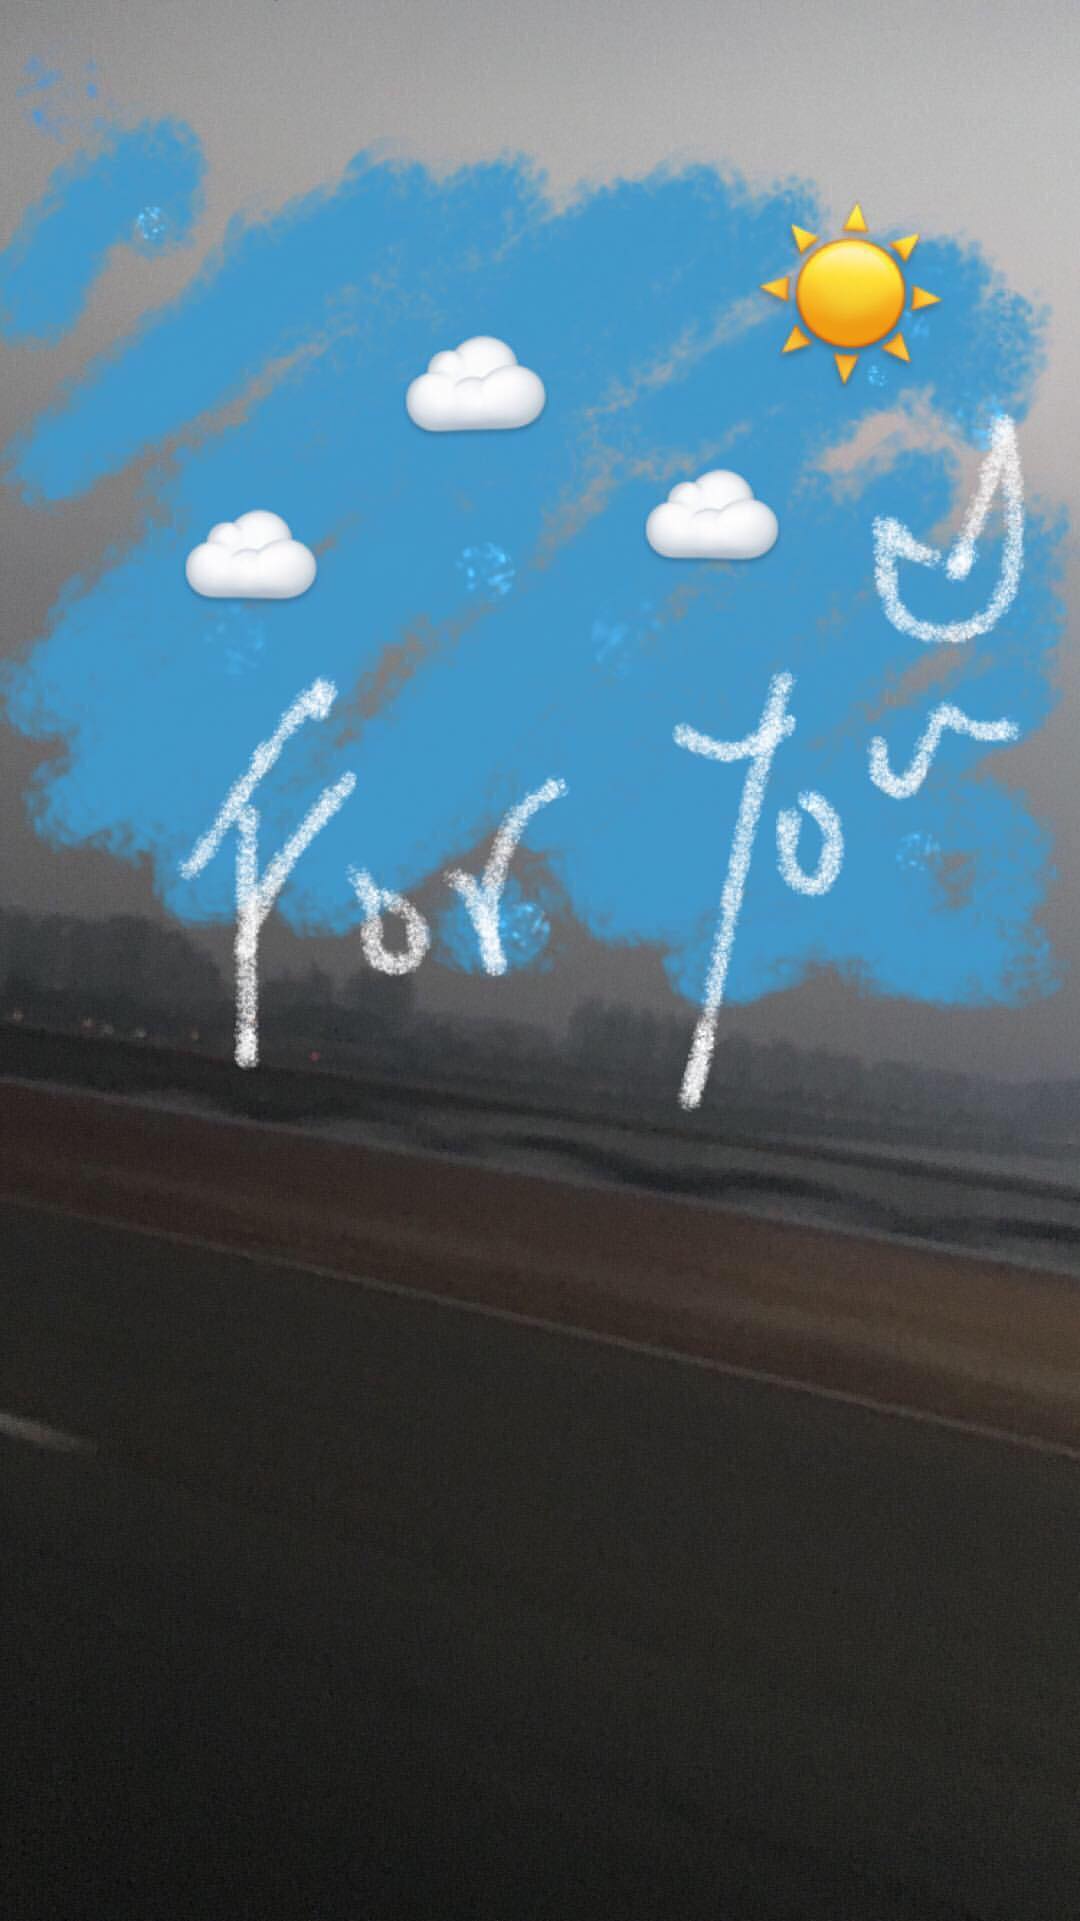 For You